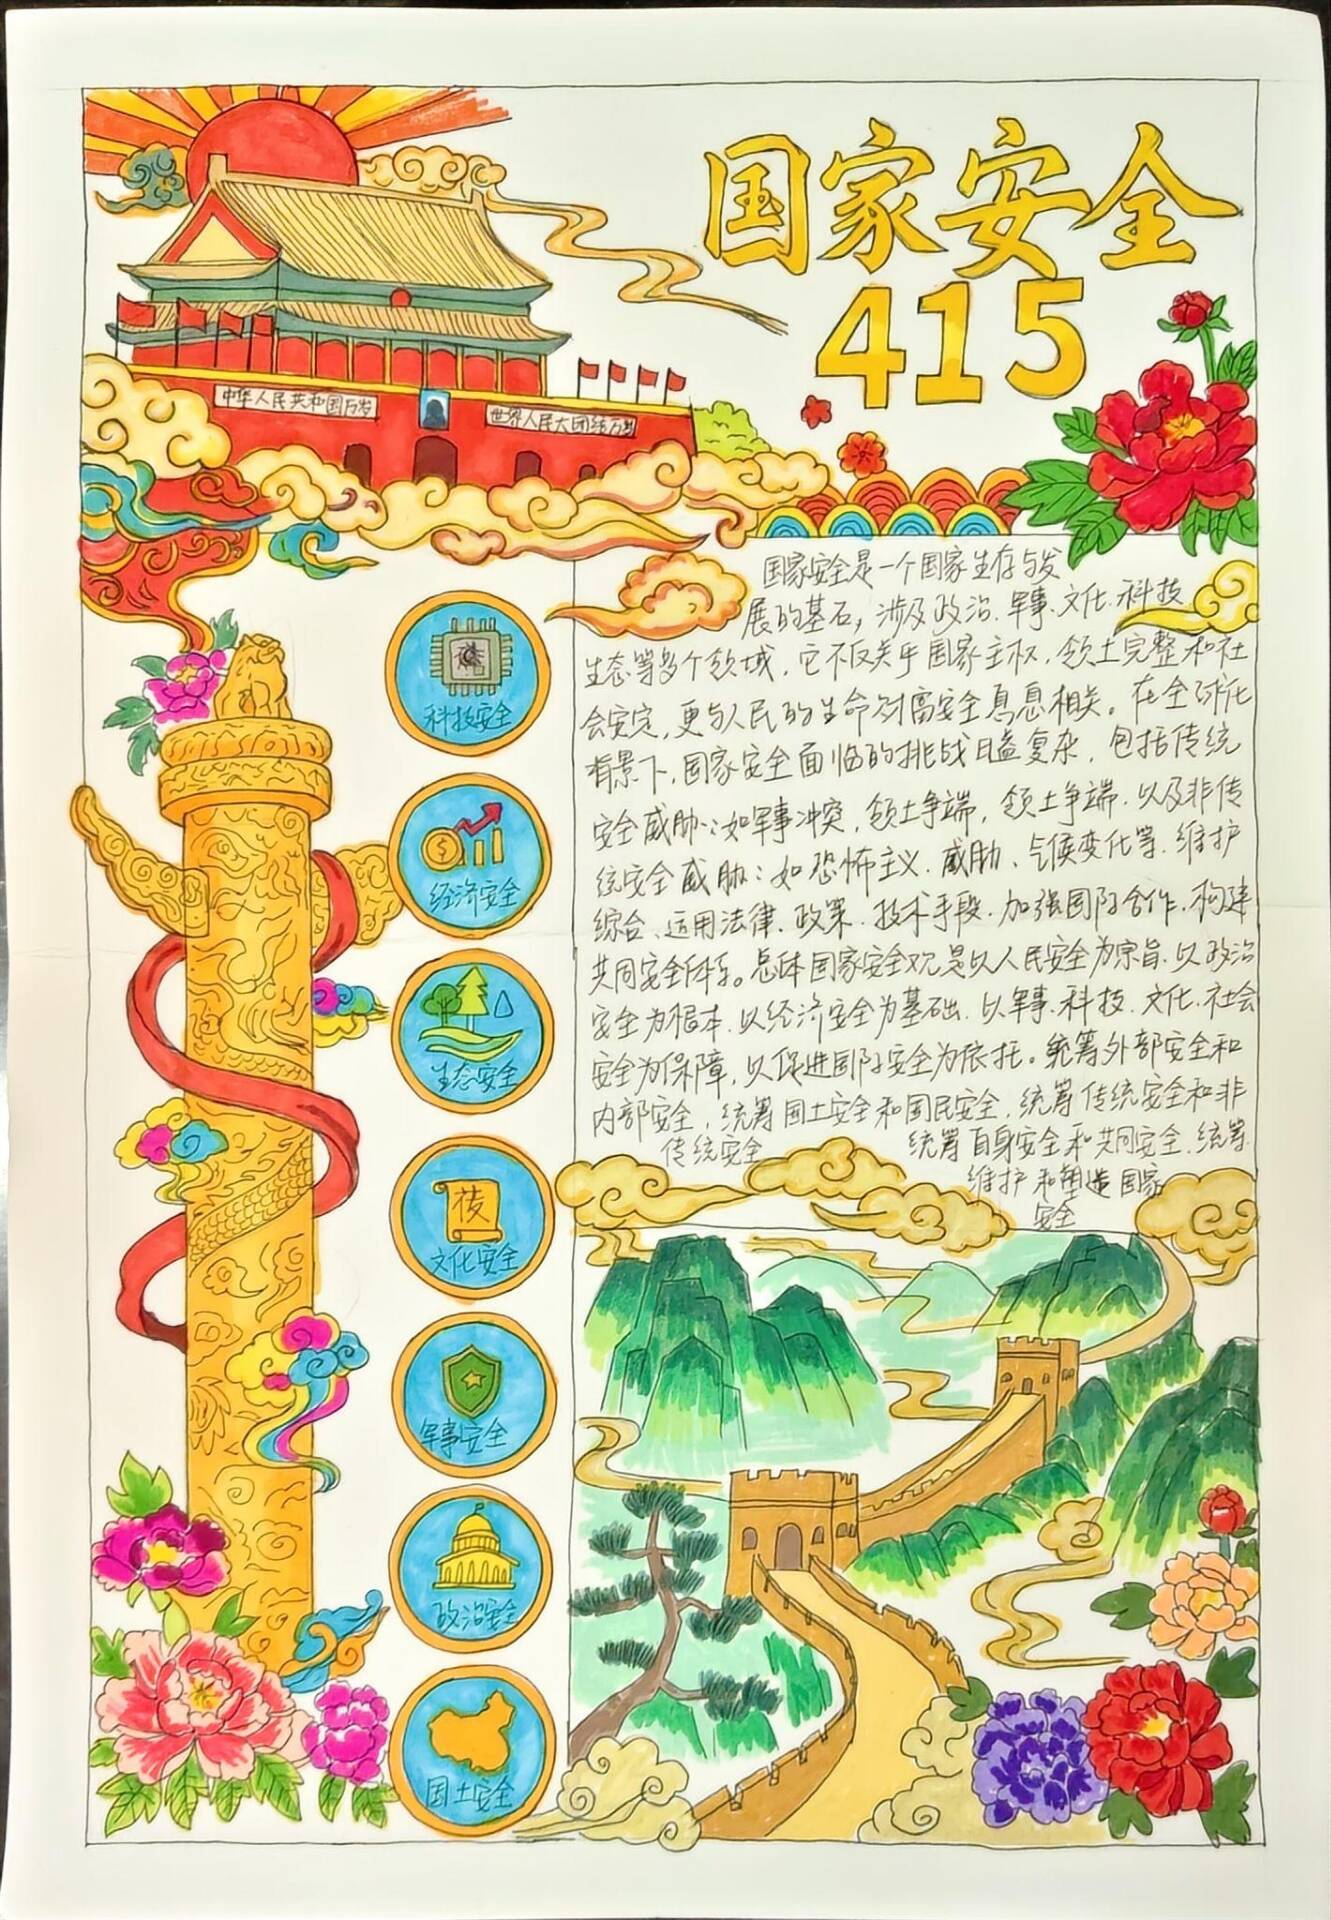 国家安全
415
中华人民共和国万岁
世界人民大团结万岁
国家安全是一个国家生存与发
展的基石，涉及政治、军事、文化、科技
生态等多个领域，它不仅关乎国家主权，领土完整和社
会安定，更与人民的生命财富安全息息相关。在全球化
背景下，国家安全面临的挑战日益复杂，包括传统
安全威胁：如军事冲突，领土争端，领土争端，以及非传
统安全威胁：如恐怖主义、威胁、气候变化等，维护
综合、运用法律、政策、技术手段，加强国际合作，构建
共同安全体系。总体国家安全观是以人民安全为宗旨，以政治
安全为根本，以经济安全为基础，以军事、科技、文化、社会
安全为保障，以促进国际安全为依托。统筹外部安全和
内部安全，统筹国土安全和国民安全，统筹传统安全和非
传统安全 统筹自身安全和共同安全，统筹
维护和塑造国家
安全
科技安全
经济安全
生态安全
技
文化安全
军事安全
政治安全
国土安全